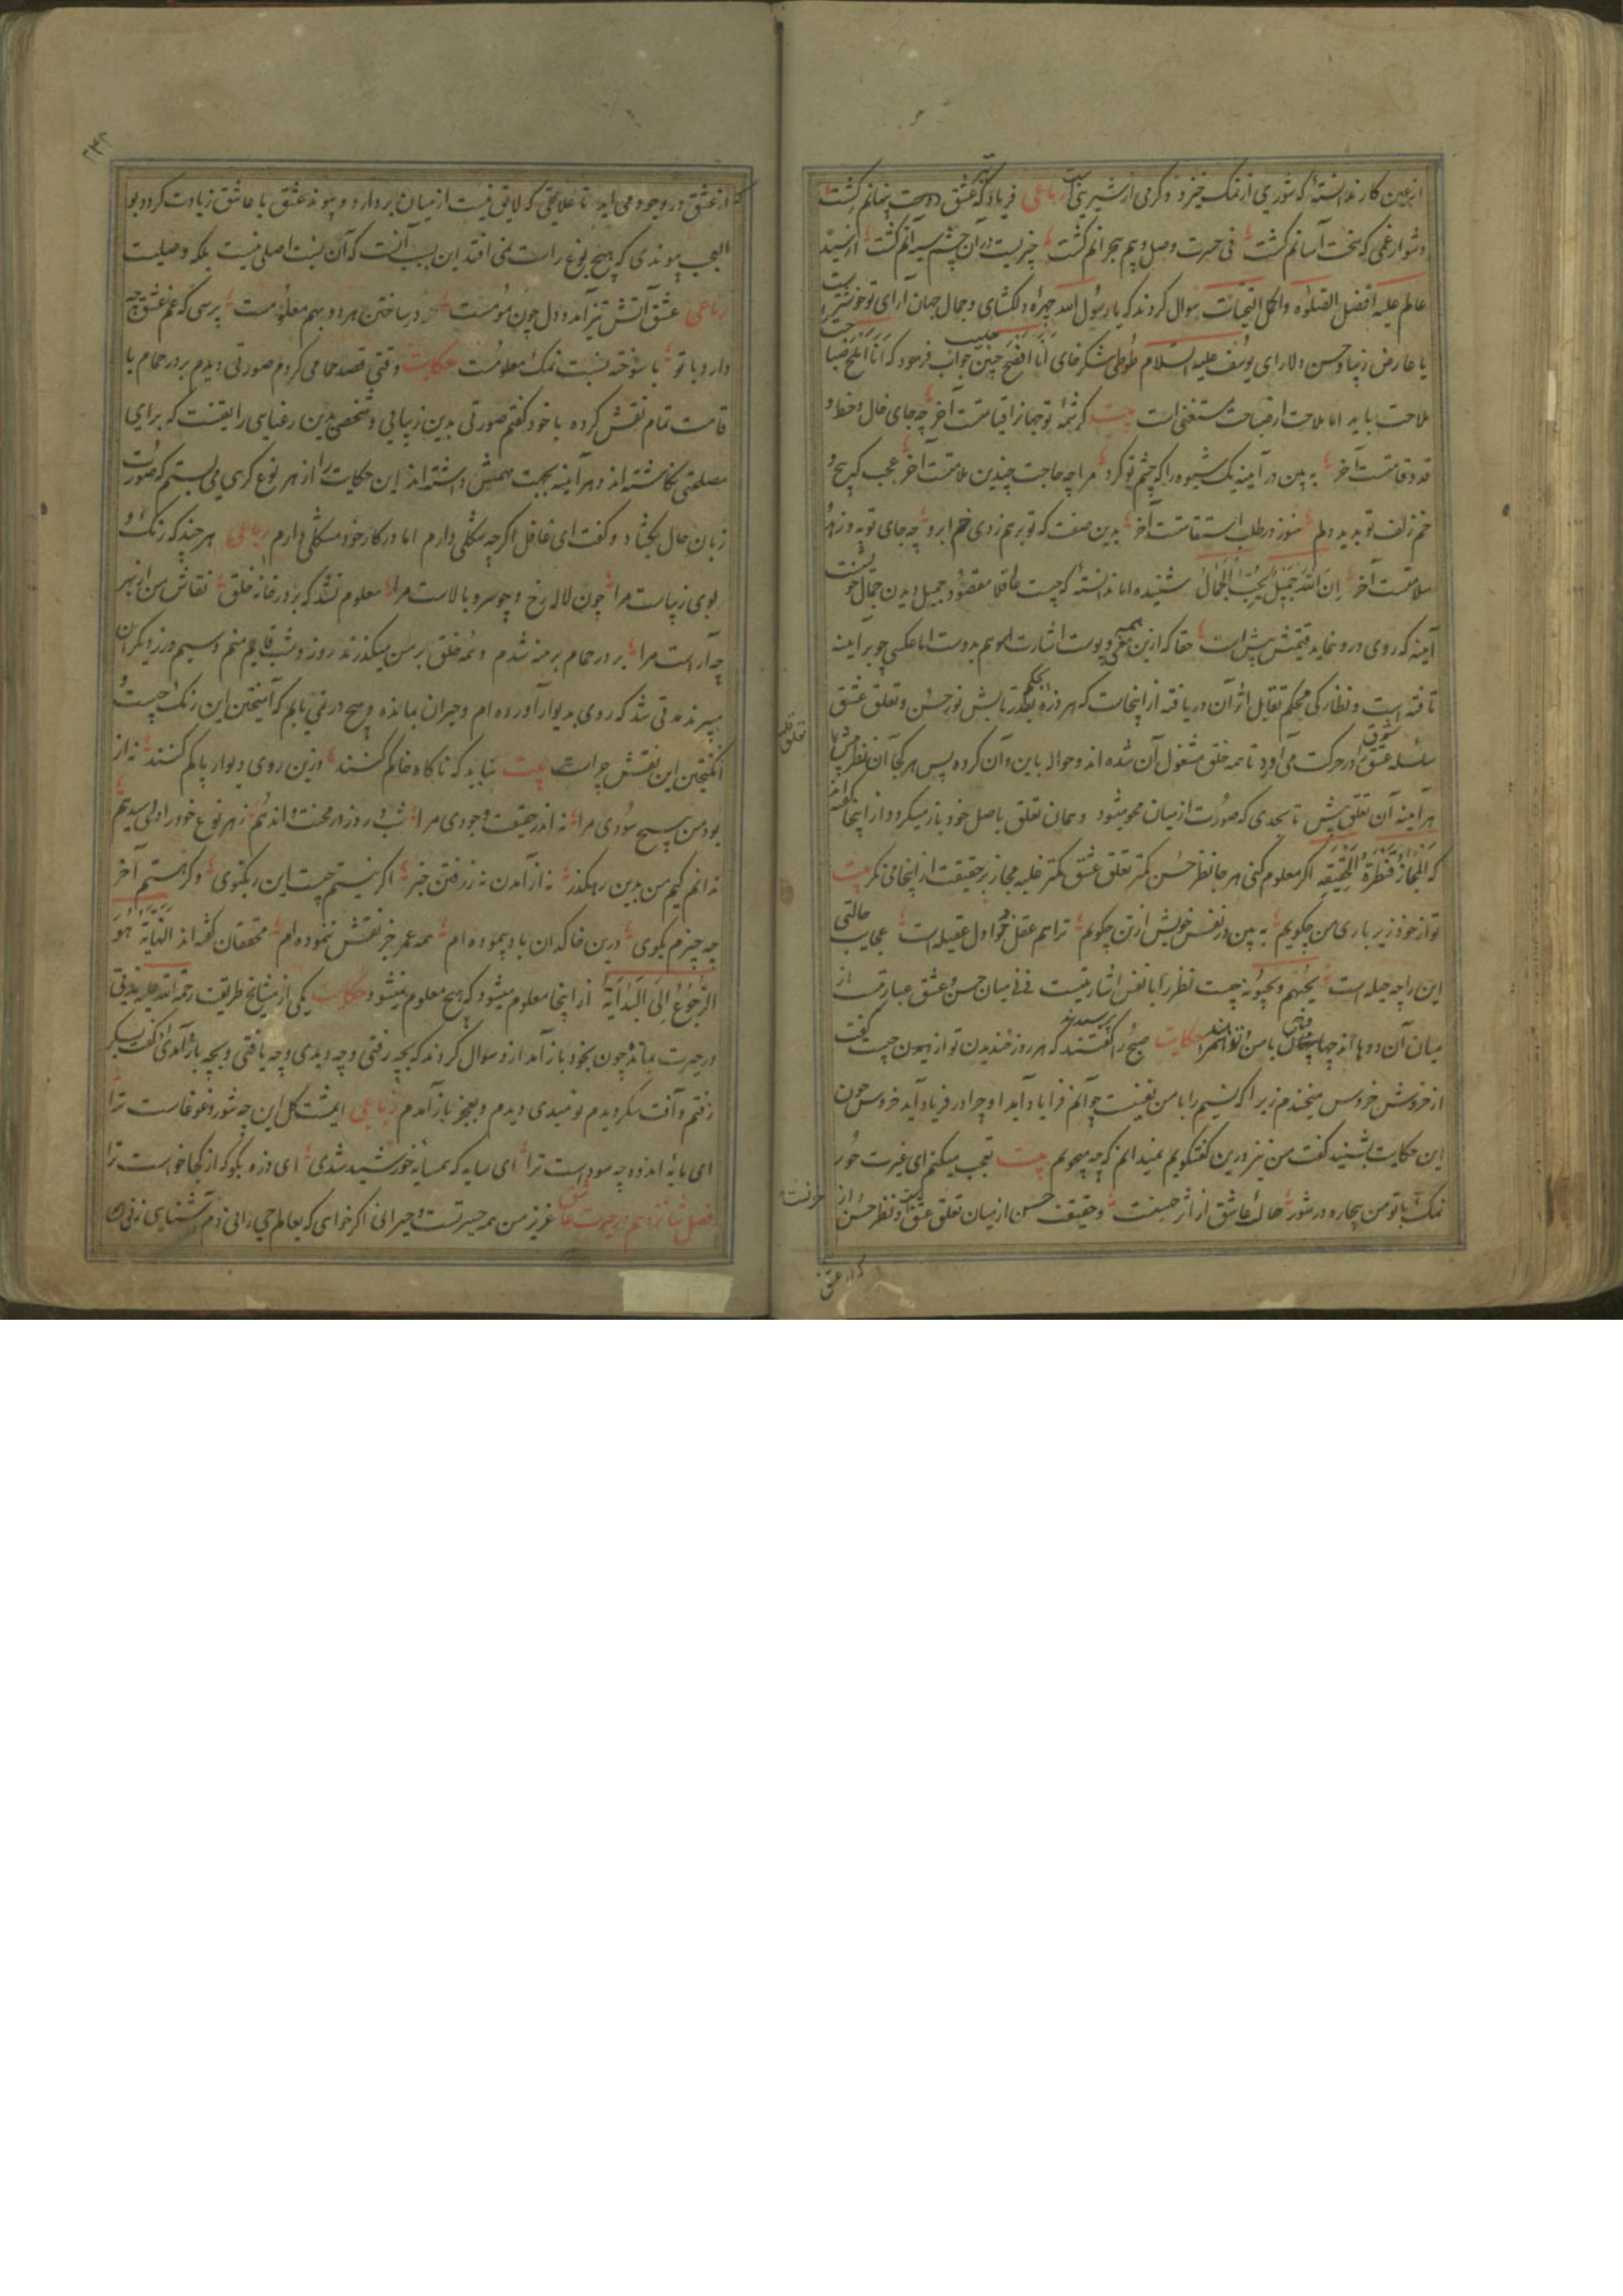 ازین کار ندانسته که شوری از نمک خیزد و گرمی از شیرینی رباعی فریاد که عشق دوست پنهانم کشت
دشوار غمی که سخت آسانم کشت فی حسرت وصل و بیم هجرانم کشت چیزیست در آن چشم سیه آنم کشت از سید
عالم علیه افضل الصلوة واکمل التحیات سوال کردند که یا رسول الله چهره دلگشای و جمال جهان آرای تو خوشتر است
یا عارض زیبا و حسن دلارای یوسف علیه السلام طوطی شکرخای انا افصح چنین جواب فرمود که انا املح
ملاحت باید اما ملاحت از صباحت مستغنی است بیت کرشمه تو جهانرا قیامتست آخر چه جای خال و خط و
قد و قامتست آخر به بین در آینه یک شیوه را که چشم تو کرد مرا چه حاجت چندین ملامتست آخر عجب که پیچ و
خم زلف تو بدید دلم هنوز در طلب استقامتست آخر بدین صفت که تو بر هم زدی خم ابرو چه جای توبه و زهد و
سلامتست آخر ان الله جمیل یحب الجمال شنیده اما ندانسته که چیست عاقلا مقصود جمیل دیدن جمال خوشست
آینه که روی درو نماید قیمتش پیش است حقا که ازین همه مغی و پوست اشارت اویم بدوست اما عکسی چو بر آینه
تافته است و نظارکی محکم تقابل اثر آن دریافته از اینجاست که هر ذره بقدر تابش نور حسن و تعلق عشق
سلسله شوق را در حرکت می آورد تا همه خلق مشغول آن شده اند و حواله باین و آن کرده پس هر کجا آن نظر بیش
هر آینه آن تعلق بیش تا بحدی که صورت از میان محو میشود و همان تعلق باصل خود باز میگردد از اینجا گفته اند
که المجاز قنطرة الحقیقه اکر معلوم کنی هر جا نظر حسن کمتر تعلق عشق کمتر غلبه مجاز بر حقیقت از اینجا می نگر بیت
تو از خود زیر باری من چکویم به بین در نفس خویش از تن چکویم ترا هم عقل تو اول عقیله است عجایب حالتی
این را چه حیله است یحبهم و یحبونه چیست نظر را با نفس اشارتیست فی میان حسن و عشق عبارتست از
میان آن دو با من حکایت صبح را گفتند که هر روز خندیدن تو از بهر چیست گفت
از خروش خروس میخندم زیرا که نسیم را با من نفسیست چو آنم فرا یاد آید او چرا در فریاد آید خروس چون
این حکایت بشنید گفت من نیز درین گفتگویم نمیدانم که چه میجویم بیت تعجب میکنم ای غیرت حور
نمک با تو من بیچاره در شور حال عاشق از اثر حسنست و حقیقت حسن از میان تعلق عشق و نظر حسن از
که از عشق
۲۴۲
از عشق در وجود می آید تا علایقی که لایق نیست از میان بردارد و پیوند عشق با عاشق زیادت کردد بو
العجب پیوندی که بهیچ نوع راست نمی افتد این بسبب آنست که آن نسبت اصلی نیست بلکه وصلیست
رباعی عشق آتش تیز آمد و دل چون مومست در ساختن هر دو بهم معلومست پرسی که غم عشق چه
دارد با تو با سوخته نسبت نمک معلومست حکایت وقتی قصد حمامی کردم صورتی دیدم بر در حمام با
قامت تمام نقش کرده با خود گفتم صورتی بدین زیبایی و شخصی بدین رعنایی را بعینه که برای
مصلحتی نگاشته اند و هر آینه بجهت مهمش داشته اند این حکایت را از هر نوع کری می بستم که صورت
زبان حال بکشاد و گفت ای غافل اگر چه شکلی دارم اما در کار خود مشکلی دارم رباعی هر چند که رنگ و
بوی زیباست مرا چون لاله رخ و چو سرو بالاست مرا معلوم نشد که بر در خانه خلق نقاش من از بهر
چه آراست مرا بر در حمام برهنه شدم و همه خلق بر من میگذرند روز و شب قایم منم و سیم و زر دیگران
میبرند مدتی شد که روی بدیوار آورده ام و حیران بمانده و هیچ در نمی یابم که آمیختن این رنگ چیست و
انگیختن این نقش چراست بیت نباید که ناگاه خاکم کنند وزین روی دیوار پاکم کنند نه از
بود من هیچ سودی مرا نه اندر حقیقت وجودی مرا شب و روز در محنت و اندهم ز هر نوع خود را دلی میدهم
ندانم کیم من بدین رهگذر نه از آمدن نه ز رفتن خبر اگر نیستم چیست این رنگ و بوی وگر هستم آخر
چه چیزم بگوی درین خاکدان باد پیموده ام همه عمر جز نقش ننموده ام محققان گفته اند النهایة هو
الرجوع الی البدایة از اینجا معلوم میشود که هیچ معلوم نمیشود حکایت یکی از مشایخ طریقت رحمة الله علیه مدتی
در حیرت بماند چون بخود باز آمد ازو سوال کردند که بچه رفتی و چه دیدی و چه یافتی و بچه باز آمدی گفت بسکر
رفتم و آفت سکر دیدم نومیدی دیدم و بعجز باز آمدم رباعی ای مشت گل این چه شور و غوغاست ترا
ای مایه اندوه چه سوداست ترا ای سایه که همسایه خورشید شدی ای ذره بگو که از کجا خواست ترا
فصل شانزدهم در حیرت عاشق عزیز من همه حیرتست و حیرانی اگر خواهی که بعالم حیرانی دم آشنایی زنی